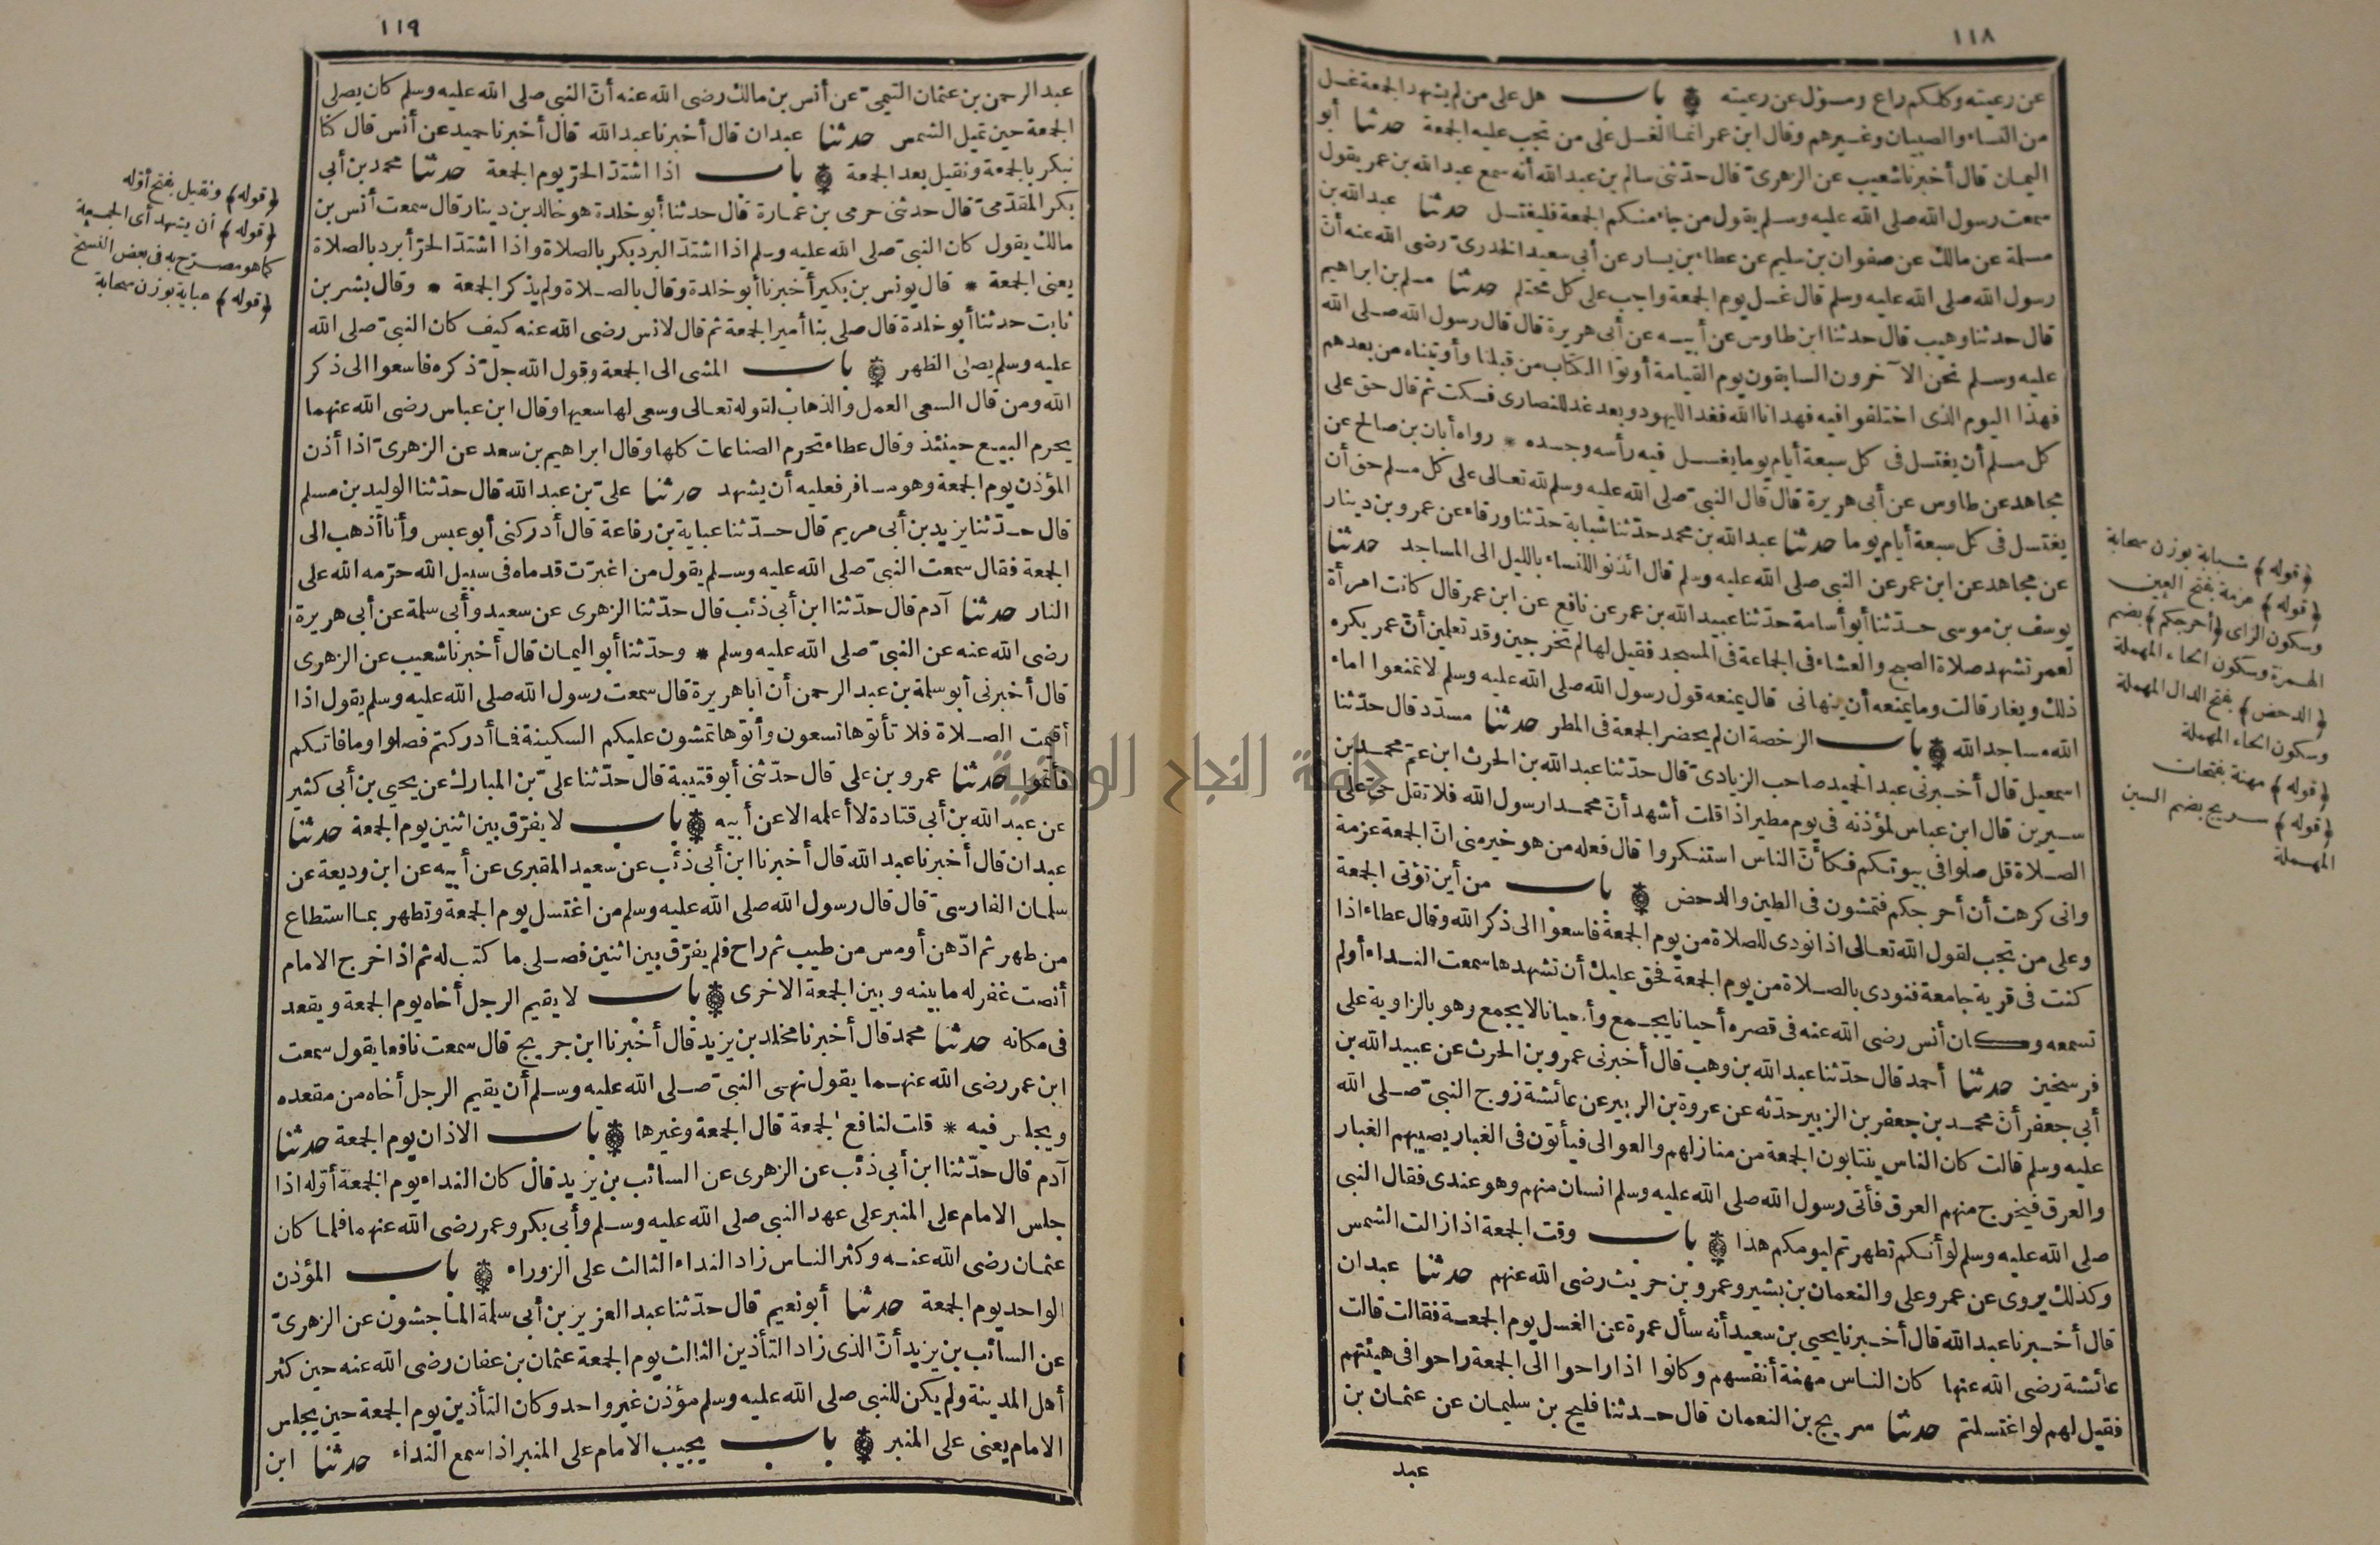 ١١٨
عن رعيته وكلكم راع ومسؤل عن رعيته باب هل على من لم يشهد الجمعة غسل
من النساء والصبيان وغيرهم وقال ابن عمر انما الغسل على من تجب عليه الجمعة حدثنا أبو
اليمان قال أخبرنا شعيب عن الزهرىّ قال حدّثنى سالم بن عبد الله أنه سمع عبد الله بن عمر يقول
سمعت رسول الله صلى الله عليه وسلم يقول من جاء منكم الجمعة فليغتسل حدثنا عبد الله بن
مسلمة عن مالك عن صفوان بن سليم عن عطاء بن يسار عن أبى سعيد الخدرىّ رضى الله عنه أنّ
رسول الله صلى الله عليه وسلم قال غسل يوم الجمعة واجب على كل محتلم حدثنا مسلم بن ابراهيم
قال حدثنا وهيب قال حدثنا ابن طاوس عن أبيه عن أبى هريرة قال قال رسول الله صلى الله
عليه وسلم نحن الآخرون السابقون يوم القيامة أوتوا الكتاب من قبلنا وأوتيناه من بعدهم
فهذا اليوم الذى اختلفوا فيه فهدانا الله فغدا لليهود وبعد غد للنصارى فسكت ثم قال حق على
كل مسلم أن يغتسل فى كل سبعة أيام يوما يغسل فيه رأسه وجسده * رواه أبان بن صالح عن
مجاهد عن طاوس عن أبى هريرة قال قال النبىّ صلى الله عليه وسلم لله تعالى على كل مسلم حق أن
يغتسل فى كل سبعة أيام يوما حدثنا عبد الله بن محمد حدّثنا شبابة حدّثنا ورقاء عن عمرو بن دينار
عن مجاهد عن ابن عمر عن النبى صلى الله عليه وسلم قال ائذنوا للنساء بالليل الى المساجد حدثنا
يوسف بن موسى حدّثنا أبو أسامة حدّثنا عبيد الله بن عمر عن نافع عن ابن عمر قال كانت امرأة
لعمر تشهد صلاة الصبح والعشاء فى الجماعة فى المسجد فقيل لها لم تخرجين وقد تعلمين أنّ عمر يكره
ذلك ويغار قالت وما يمنعه أن ينهانى قال يمنعه قول رسول الله صلى الله عليه وسلم لا تمنعوا اماء
الله مساجد الله باب الرخصة ان لم يحضر الجمعة فى المطر حدثنا مسدّد قال حدّثنا
اسمعيل قال أخبرنى عبد الحميد صاحب الزيادىّ قال حدّثنا عبد الله بن الحرث ابن عمّ محمد بن
سيرين قال ابن عباس لمؤذنه فى يوم مطير اذا قلت أشهد أنّ محمدا رسول الله فلا تقل حىّ على
الصلاة قل صلوا فى بيوتكم فكأنّ الناس استنكروا قال فعله من هو خير منى انّ الجمعة عزمة
وانى كرهت أن أحرجكم فتمشون فى الطين والدحض باب من أين تؤتى الجمعة
وعلى من تجب لقول الله تعالى اذا نودى للصلاة من يوم الجمعة فاسعوا الى ذكر الله وقال عطاء اذا
كنت فى قرية جامعة فنودى بالصلاة من يوم الجمعة فحق عليك أن تشهدها سمعت النداء أو لم
تسمعه وكان أنس رضى الله عنه فى قصره أحيانا يجمع وأحيانا لا يجمع وهو بالزاوية على
فرسخين حدثنا أحمد قال حدّثنا عبد الله بن وهب قال أخبرنى عمرو بن الحرث عن عبيد الله بن
أبى جعفر أنّ محمد بن جعفر بن الزبير حدّثه عن عروة بن الزبير عن عائشة زوج النبىّ صلى الله
عليه وسلم قالت كان الناس ينتابون الجمعة من منازلهم والعوالى فيأتون فى الغبار يصيبهم الغبار
والعرق فيخرج منهم العرق فأتى رسول الله صلى الله عليه وسلم انسان منهم وهو عندى فقال النبى
صلى الله عليه وسلم لو أنكم تطهرتم ليومكم هذا باب وقت الجمعة اذا زالت الشمس
وكذلك يروى عن عمر وعلى والنعمان بن بشير وعمرو بن حريث رضى الله عنهم حدثنا عبدان
قال أخبرنا عبد الله قال أخبرنا يحيى بن سعيد أنه سأل عمرة عن الغسل يوم الجمعة فقالت قالت
عائشة رضى الله عنها كان الناس مهنة أنفسهم وكانوا اذا راحوا الى الجمعة راحوا فى هيئتهم
فقيل لهم لو اغتسلتم حدثنا سريج بن النعمان قال حدثنا فليح بن سليمان عن عثمان بن
عبد
﴿قوله﴾ شبابة بوزن سحابة
﴿قوله﴾ عزمة بفتح العين
وسكون الزاى ﴿أحرجكم﴾ بضم
الهمزة وسكون الحاء المهملة
﴿الدحض﴾ بفتح الدال المهملة
وسكون الحاء المهملة
﴿قوله﴾ مهنة بفتحات
﴿قوله﴾ سريج بضم السين
المهملة
١١٩
عبد الرحمن بن عثمان التيمىّ عن أنس بن مالك رضى الله عنه أنّ النبى صلى الله عليه وسلم كان يصلى
الجمعة حين تميل الشمس حدثنا عبدان قال أخبرنا عبد الله قال أخبرنا حميد عن أنس قال كنا
نبكر بالجمعة ونقيل بعد الجمعة باب اذا اشتدّ الحرّ يوم الجمعة حدثنا محمد بن أبى
بكر المقدّمىّ قال حدثنى حرمى بن عمارة قال حدثنا أبو خلدة هو خالد بن دينار قال سمعت أنس بن
مالك يقول كان النبىّ صلى الله عليه وسلم اذا اشتدّ البرد بكر بالصلاة واذا اشتدّ الحرّ أبرد بالصلاة
يعنى الجمعة * قال يونس بن بكير أخبرنا أبو خلدة وقال بالصلاة ولم يذكر الجمعة * وقال بشر بن
ثابت حدثنا أبو خلدة قال صلى بنا أمير الجمعة ثم قال لانس رضى الله عنه كيف كان النبىّ صلى الله
عليه وسلم يصلى الظهر باب المشى الى الجمعة وقول الله جلّ ذكره فاسعوا الى ذكر
الله ومن قال السعى العمل والذهاب لقوله تعالى وسعى لها سعيها وقال ابن عباس رضى الله عنهما
يحرم البيع حينئذ وقال عطاء تحرم الصناعات كلها وقال ابراهيم بن سعد عن الزهرىّ اذا أذن
المؤذن يوم الجمعة وهو مسافر فعليه أن يشهد حدثنا علىّ بن عبد الله قال حدّثنا الوليد بن مسلم
قال حدّثنا يزيد بن أبى مريم قال حدّثنا عباية بن رفاعة قال أدركنى أبو عبس وأنا أذهب الى
الجمعة فقال سمعت النبىّ صلى الله عليه وسلم يقول من اغبرّت قدماه فى سبيل الله حرّمه الله على
النار حدثنا آدم قال حدّثنا ابن أبى ذئب قال حدّثنا الزهرى عن سعيد وأبى سلمة عن أبى هريرة
رضى الله عنه عن النبىّ صلى الله عليه وسلم * وحدّثنا أبو اليمان قال أخبرنا شعيب عن الزهرى
قال أخبرنى أبو سلمة بن عبد الرحمن أن أبا هريرة قال سمعت رسول الله صلى الله عليه وسلم يقول اذا
أقيمت الصلاة فلا تأتوها تسعون وأتوها تمشون عليكم السكينة فما أدركتم فصلوا وما فاتكم
فأتموا حدثنا عمرو بن على قال حدّثنى أبو قتيبة قال حدّثنا علىّ بن المبارك عن يحيى بن أبى كثير
عن عبد الله بن أبى قتادة لا أعلمه الا عن أبيه باب لا يفرّق بين اثنين يوم الجمعة حدثنا
عبدان قال أخبرنا عبد الله قال أخبرنا ابن أبى ذئب عن سعيد المقبرى عن أبيه عن ابن وديعة عن
سلمان الفارسىّ قال قال رسول الله صلى الله عليه وسلم من اغتسل يوم الجمعة وتطهر بما استطاع
من طهر ثم ادّهن أو مس من طيب ثم راح فلم يفرّق بين اثنين فصلى ما كتب له ثم اذا خرج الامام
أنصت غفر له ما بينه وبين الجمعة الاخرى باب لا يقيم الرجل أخاه يوم الجمعة ويقعد
فى مكانه حدثنا محمد قال أخبرنا مخلد بن يزيد قال أخبرنا ابن جريج قال سمعت نافعا يقول سمعت
ابن عمر رضى الله عنهما يقول نهى النبىّ صلى الله عليه وسلم أن يقيم الرجل أخاه من مقعده
ويجلس فيه * قلت لنافع الجمعة قال الجمعة وغيرها باب الاذان يوم الجمعة حدثنا
آدم قال حدّثنا ابن أبى ذئب عن الزهرى عن السائب بن يزيد قال كان النداء يوم الجمعة أوّله اذا
جلس الامام على المنبر على عهد النبى صلى الله عليه وسلم وأبى بكر وعمر رضى الله عنهما فلما كان
عثمان رضى الله عنه وكثر الناس زاد النداء الثالث على الزوراء باب المؤذن
الواحد يوم الجمعة حدثنا أبو نعيم قال حدّثنا عبد العزيز بن أبى سلمة الماجشون عن الزهرىّ
عن السائب بن يزيد أنّ الذى زاد التأذين الثالث يوم الجمعة عثمان بن عفان رضى الله عنه حين كثر
أهل المدينة ولم يكن للنبى صلى الله عليه وسلم مؤذن غير واحد وكان التأذين يوم الجمعة حين يجلس
الامام يعنى على المنبر باب يجيب الامام على المنبر اذا سمع النداء حدثنا ابن
﴿قوله﴾ ونقيل بفتح أوّله
﴿قوله﴾ أن يشهد أى الجمعة
كما هو مصرّح به فى بعض النسخ
﴿قوله﴾ عباية بوزن سحابة
جامعة النجاح الوطنية